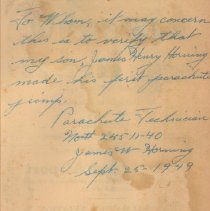 To Whom, it may concern
this is to verify that
my son, James Henry Horning
made his first parachute
jump.
Parachute Technician
Nott 245-11-40
James W Horning
Sept. 25th 1949